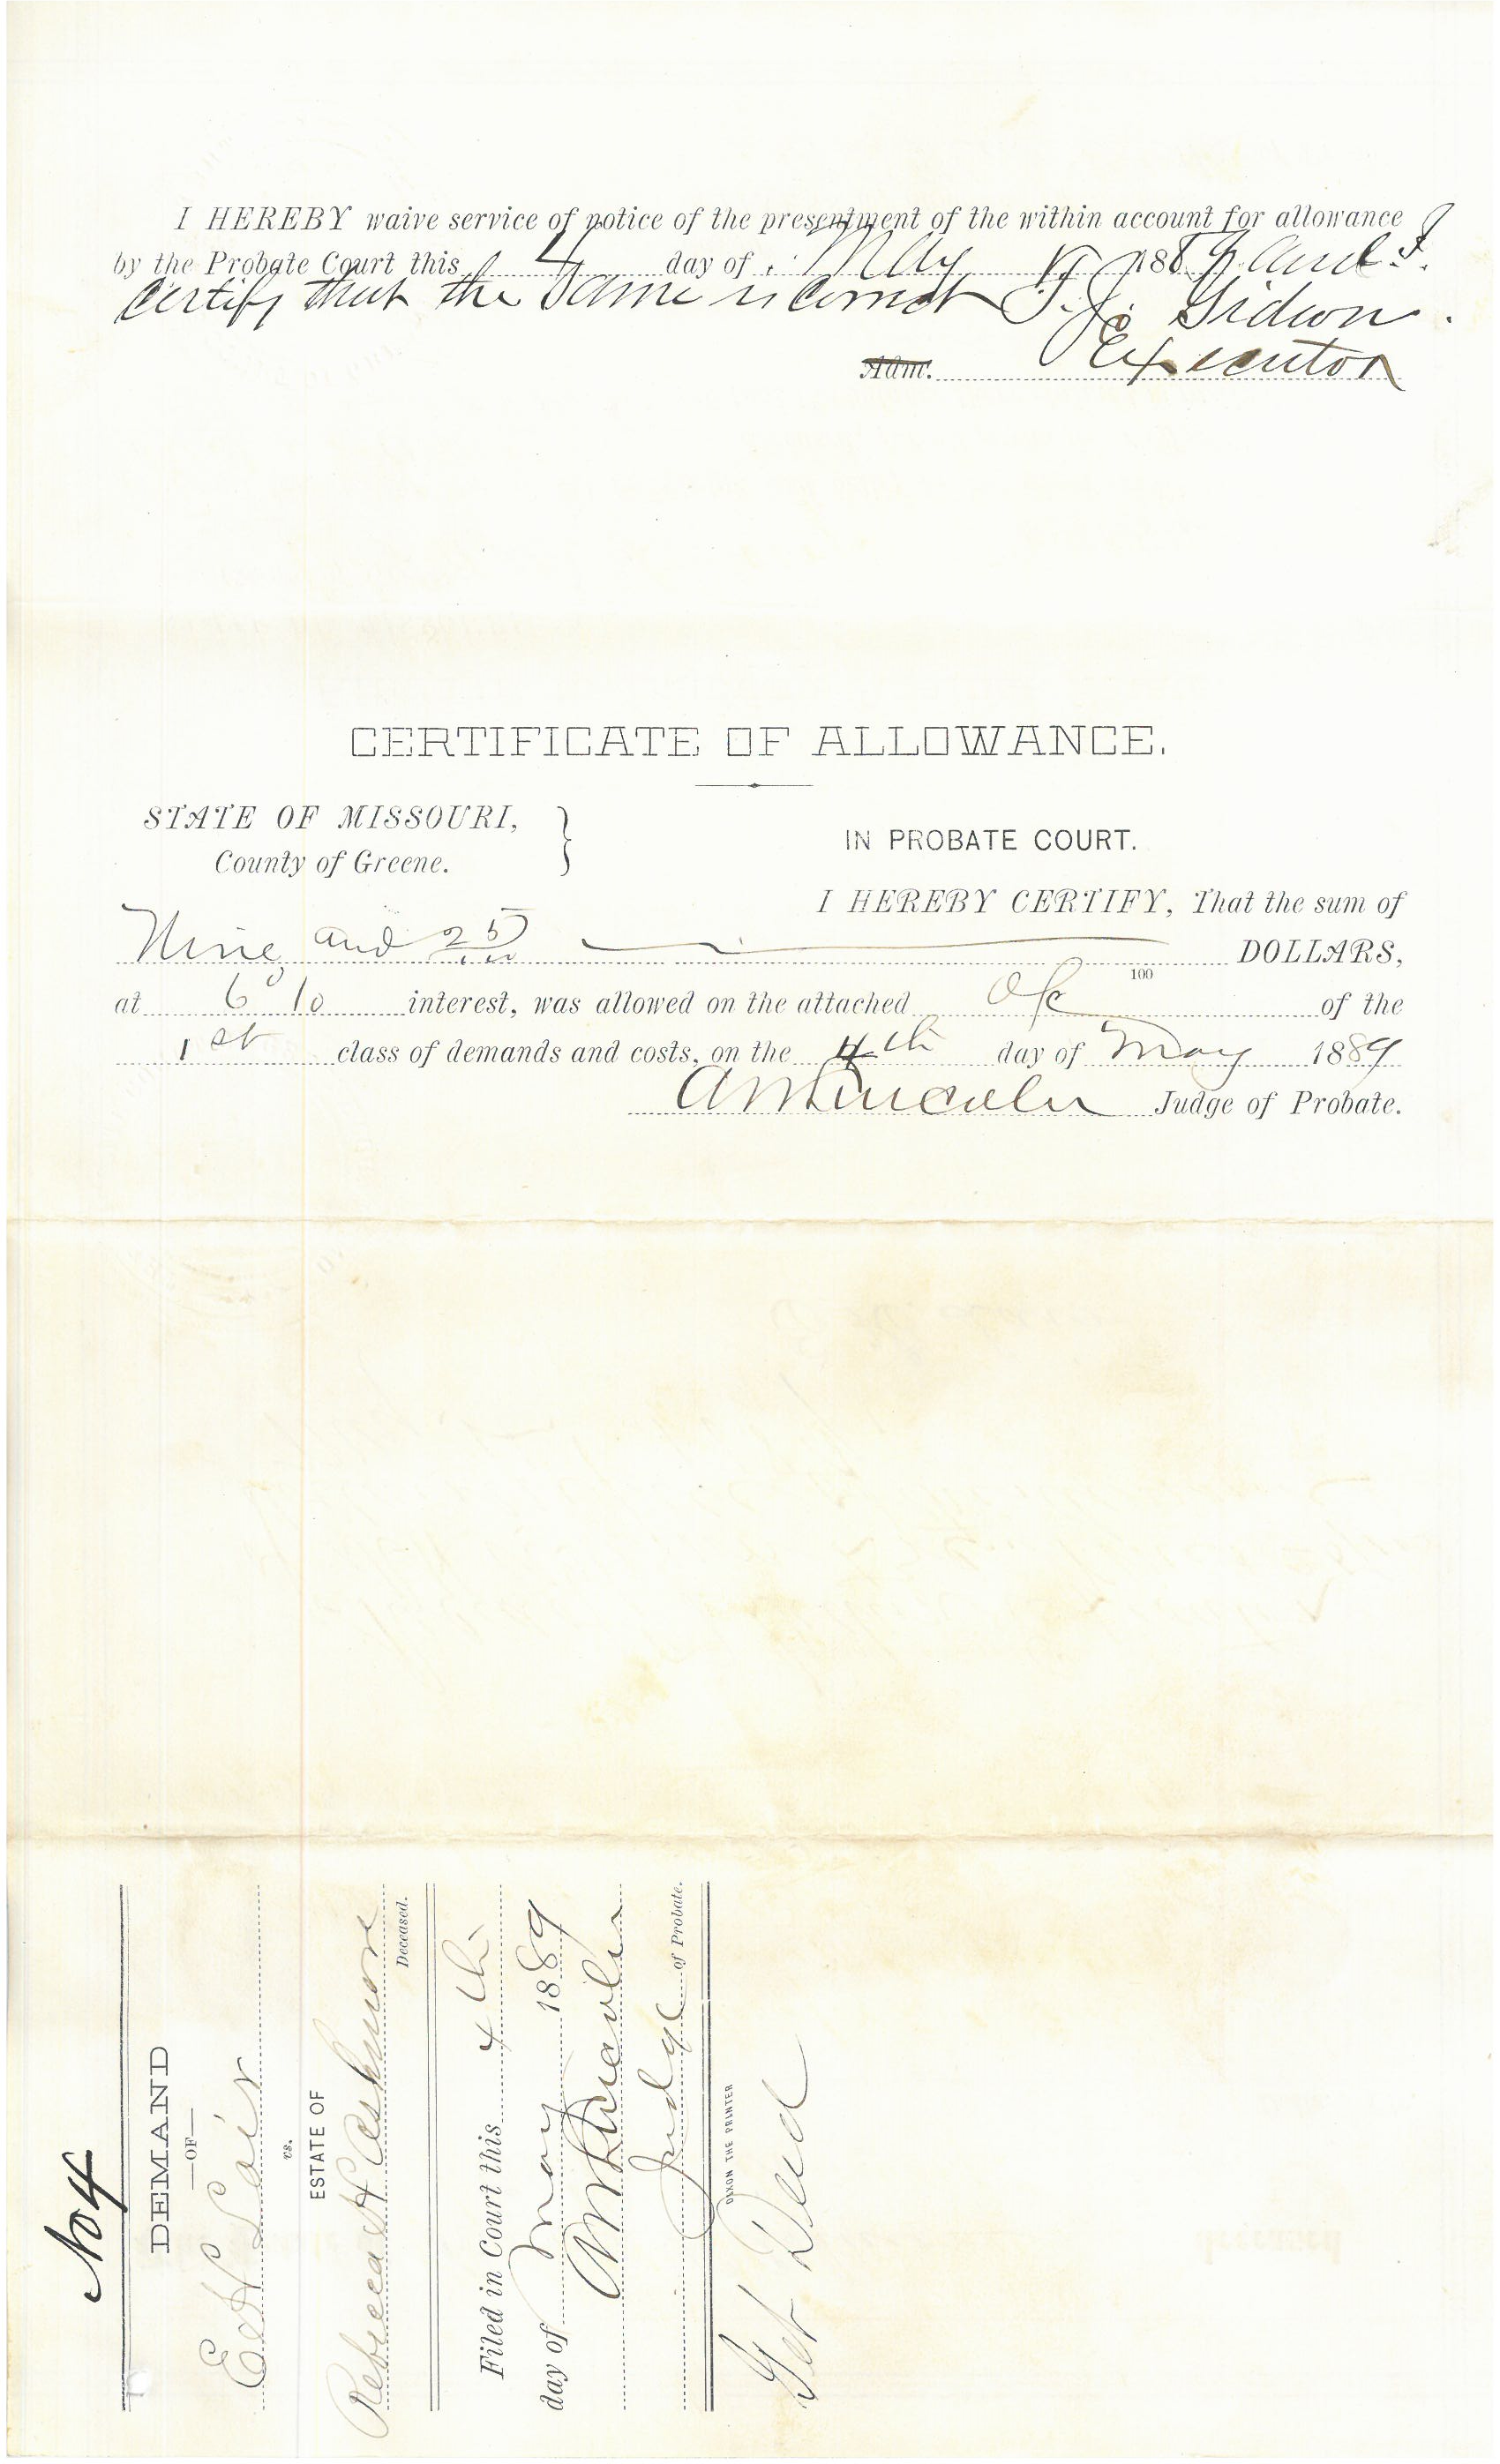 I HEREBY waive service of notice of the presentment of the within account for allowance
by the Probate Court this 4 day of May 1889 and I
certify that the same is correct T. J. Gideon.
Adm. Executor
CERTIFICATE OF ALLOWANCE.
STATE OF MISSOURI,
County of Greene.
IN PROBATE COURT.
I HEREBY CERTIFY, That the sum of
Nine and 25/100 100 DOLLARS,
at 6 % interest, was allowed on the attached a/c of the
1st class of demands and costs, on the 4th day of May 1889
Lincoln Judge of Probate.
No 4
DEMAND
—OF—
E H Lair
vs.
ESTATE OF
Rebecca H Ashmore
Deceased.
Filed in Court this 4th
day of May 1889
Lincoln
Judge of Probate.
DIXON THE PRINTER